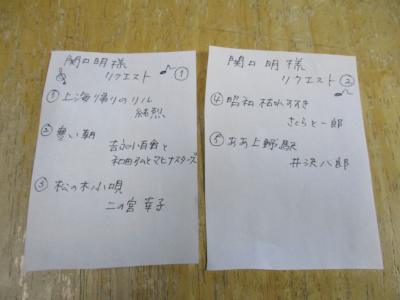 関口明様
リクエスト ①
① 上海帰りのリル
純烈
② 寒い朝
吉永小百合と
和田弘とマヒナスターズ
③ 松の木小唄
二の宮幸子
関口明様
リクエスト ②
④ 昭和枯れすすき
さくらと一郎
⑤ ああ上野駅
井沢八郎